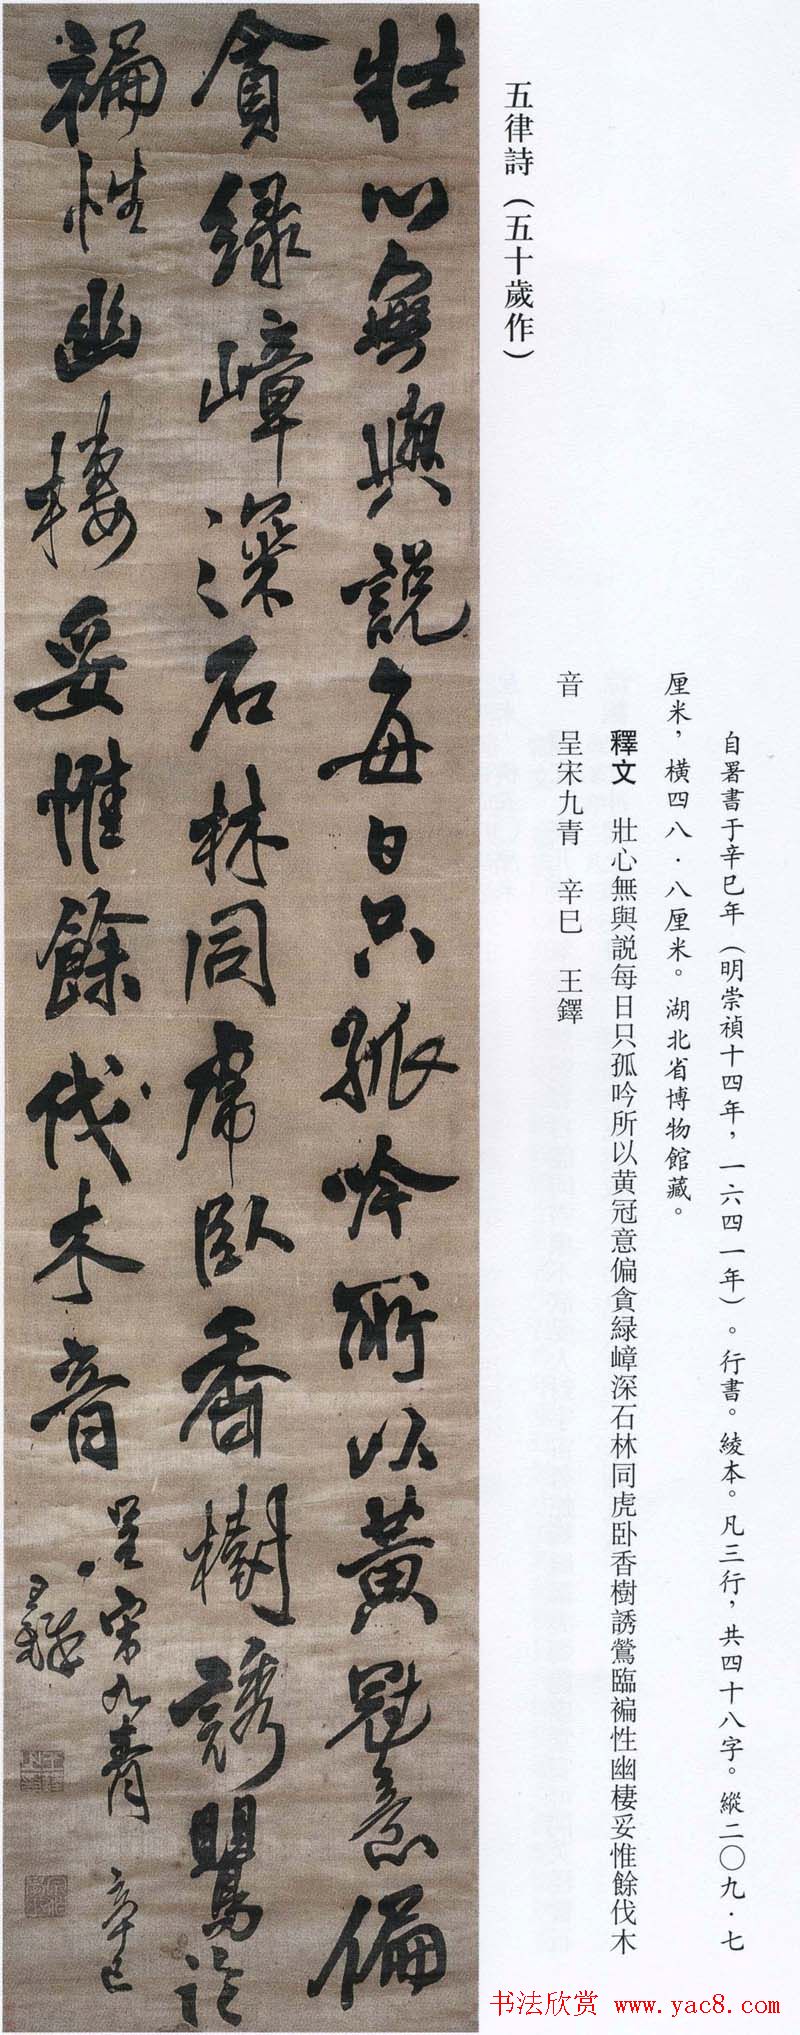 五律詩（五十歲作）
自署書于辛巳年（明崇禎十四年，一六四一年）。行書。綾本。凡三行，共四十八字。縱二〇九·七
厘米，橫四八·八厘米。湖北省博物館藏。
釋文　壯心無與説每日只孤吟所以黄冠意偏貪緑嶂深石林同虎卧香樹誘鶯臨褊性幽棲妥惟餘伐木
音　呈宋九青　辛巳　王鐸
壯心無與説每日只孤吟所以黄冠意偏
貪緑嶂深石林同虎卧香樹誘鶯臨
褊性幽棲妥惟餘伐木音
呈宋九青　辛巳
王鐸
书法欣赏 www.yac8.com